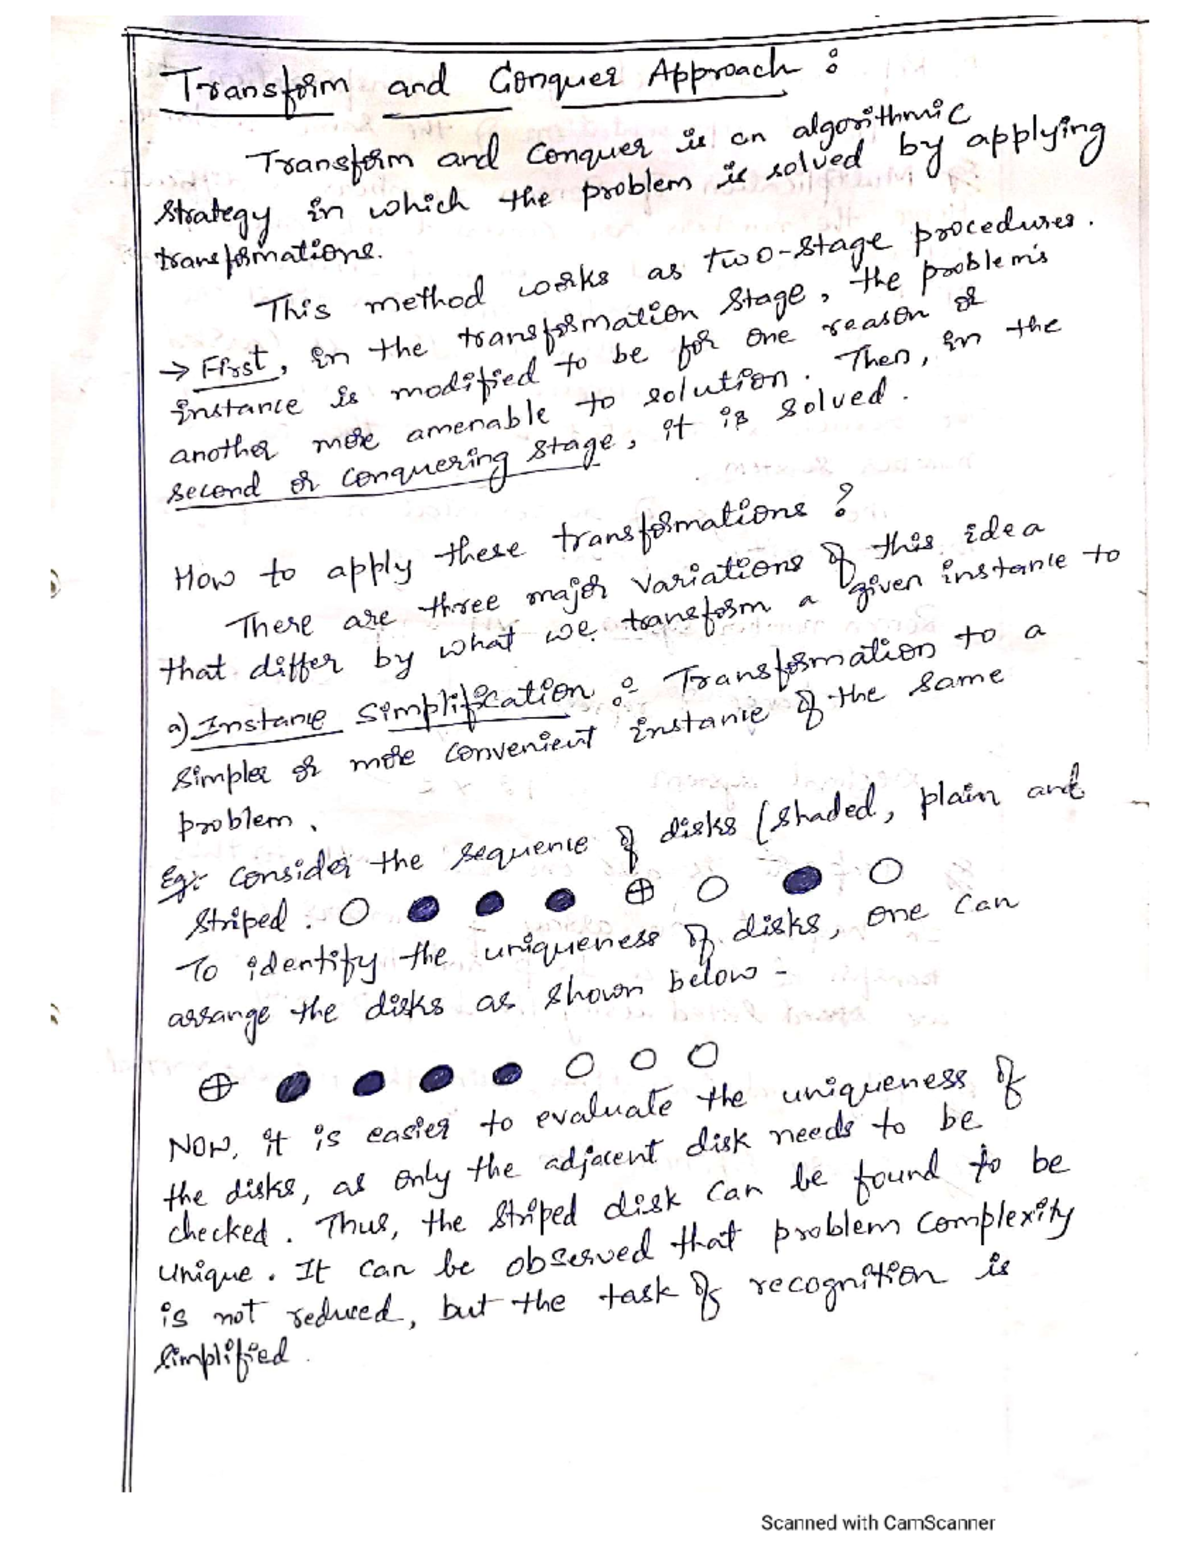 Transform and Conquer Approach :
Transform and Conquer is an algorithmic
strategy in which the problem is solved by applying
transformations.
This method works as two-stage procedures.
→ First, in the transformation stage, the problem's
instance is modified to be for one reason or
another more amenable to solution. Then, in the
second or conquering stage, it is solved.
How to apply these transformations ?
There are three major variations of this idea
that differ by what we transform a given instance to
a) Instance Simplification :- Transformation to a
simpler or more convenient instance of the same
problem.
Eg:- Consider the sequence of disks (shaded, plain and
striped.
To identify the uniqueness of disks, one can
arrange the disks as shown below -
Now, it is easier to evaluate the uniqueness of
the disks, as only the adjacent disk needs to be
checked. Thus, the striped disk can be found to be
unique. It can be observed that problem complexity
is not reduced, but the task of recognition is
simplified.
Scanned with CamScanner